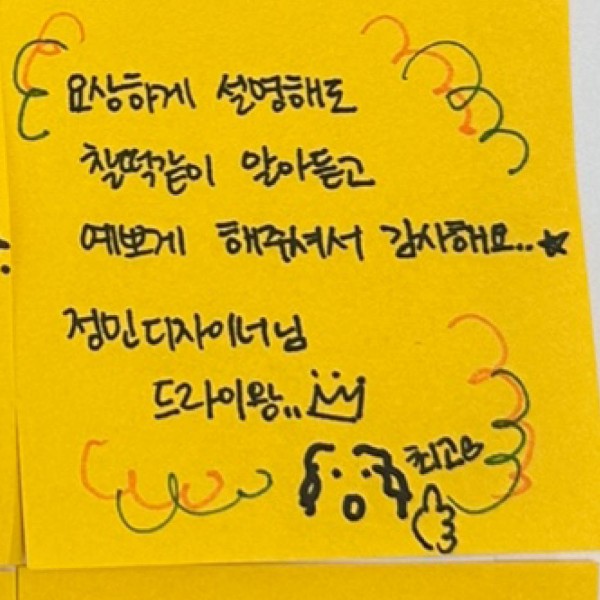 요상하게 설명해도
찰떡같이 알아듣고
예쁘게 해주셔서 감사해요..
정민디자이너님
드라이왕,,
최고